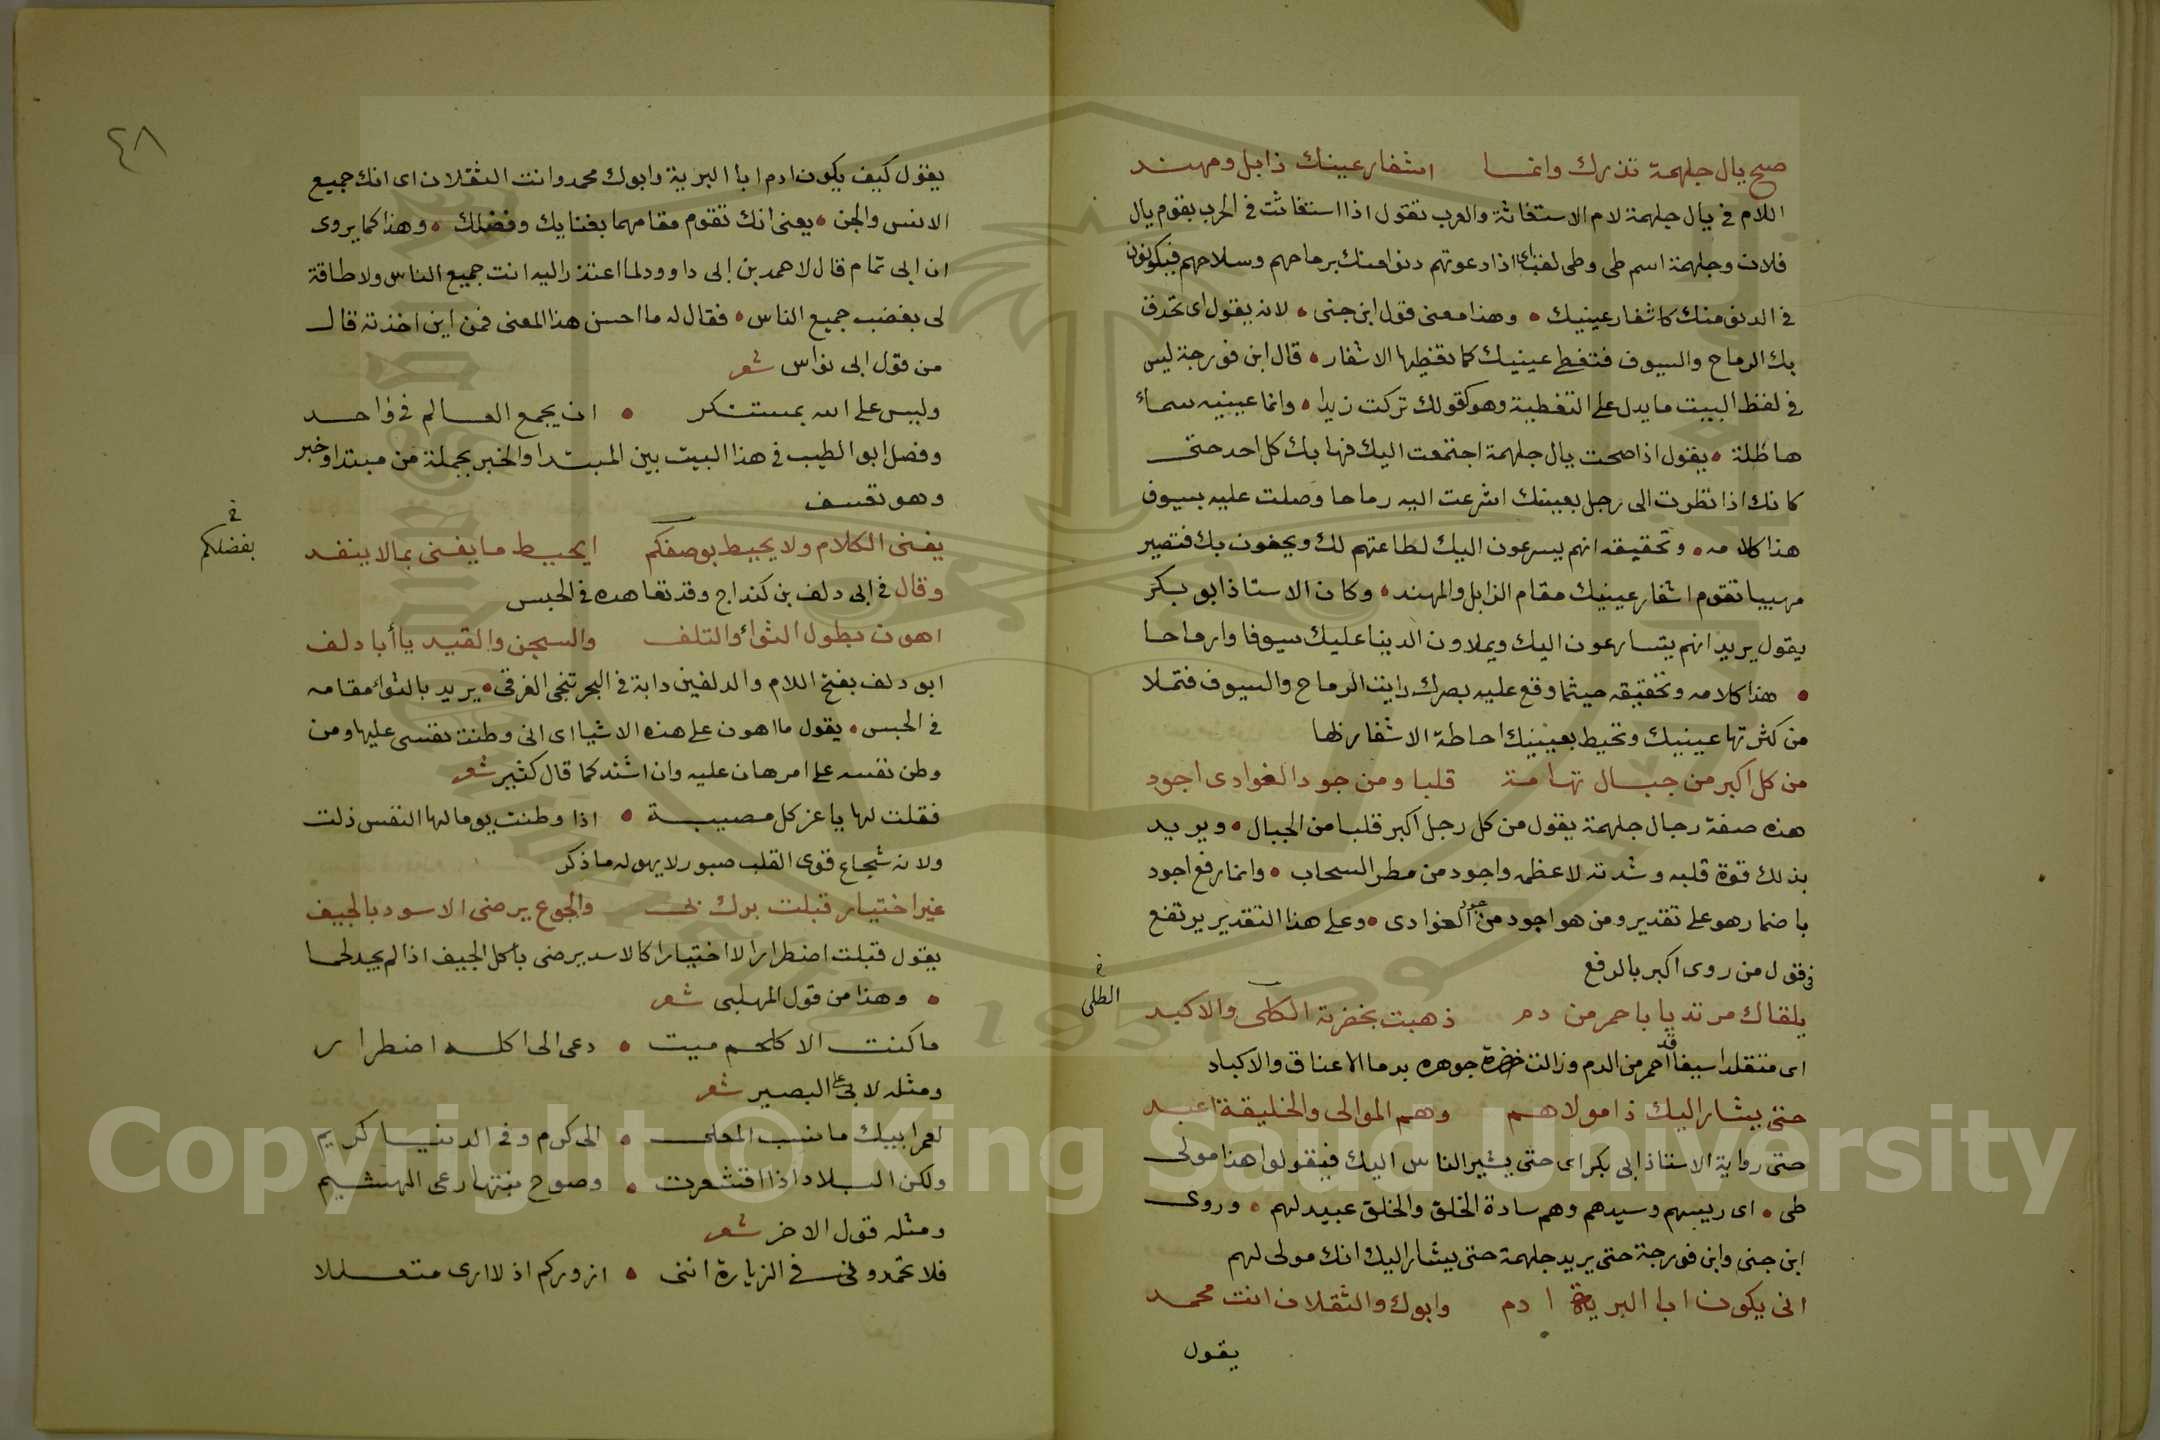 صح يال جلهمة تذرك وانما اشفار عينك ذابل ومهند
اللام في يال جلهمة لام الاستغاثة والعرب تقول اذا استغاثت في الحرب بقوم يال
فلان وجلهمة اسم طى وطى لقبه اى اذا دعوتهم دنوا منك برماحهم وسلاحهم فيكونون
في الدنو منك كاشفار عينيك • وهذا معنى قول ابن جنى • لانه يقول اى تحدق
بك الرماح والسيوف فتغطى عينيك كما تغطيها الاشفار • قال ابن فورجة ليس
في لفظ البيت ما يدل على التغطية وهو كقولك تركت زيدا • وانما عينيه سماء
هاطلة • يقول اذا صحت يال جلهمة اجتمعت اليك فهابك كل احد حتى
كانك اذا نظرت الى رجل بعينك اشرعت اليه رماحا وصلت عليه بسيوف
هذا كلامه • وتحقيقه انهم يسرعون اليك لطاعتهم لك ويحفون بك فتصير
مهيبا تقوم اشفار عينيك مقام الذابل والمهند • وكان الاستاذ ابو بكر
يقول يريد انهم يتسارعون اليك ويملاون الدنيا عليك سيوفا وارماحا
• هذا كلامه وتحقيقه حيثما وقع عليه بصرك رايت الرماح والسيوف فتملا
من كثرتها عينيك وتحيط بعينيك احاطة الاشفار بها
من كل اكبر من جبال تهامة قلبا ومن جود الغوادى اجود
هذه صفة رجال جلهمة يقول من كل رجل اكبر قلبا من الجبال • ويريد
بذلك قوة قلبه وشدته لا عظمه واجود من مطر السحاب • وانما رفع اجود
باضمار هو على تقدير ومن هو اجود من جود الغوادى • وعلى هذا التقدير يرتفع
في قول من روى اكبر بالرفع
يلقاك مرتديا باحمر من دم ذهبت بخضرته الكلى والاكبد
الطلى
اى متقلدا سيفا قد احمر من الدم وزالت خضرة جوهره بدما الاعناق والاكباد
حتى يشار اليك ذا مولاهم وهم الموالى والخليقة اعبد
حتى رواية الاستاذ ابى بكر اى حتى يشير الناس اليك فيقولوا هذا مولى
طى • اى رييسهم وسيدهم وهم سادة الخلق والخلق عبيد لهم • وروى
ابن جنى وابن فورجة حتى يريد جلهمة حتى يشار اليك انك مولى لهم
انى يكون ابا البرية ادم وابوك والثقلان انت محمد
يقول
٤٨
يقول كيف يكون ادم ابا البرية وابوك محمد وانت الثقلان اى انك جميع
الانس والجن • يعنى انك تقوم مقامهما بغنايك وفضلك • وهذا كما يروى
ان ابى تمام قال لاحمد بن ابى داوود لما اعتذر اليه انت جميع الناس ولا طاقة
لى بغضب جميع الناس • فقال له ما احسن هذا المعنى فمن اين اخذته قال
من قول ابى نواس شعر
وليس على الله بمستنكر • ان يجمع العالم في واحد
وفصل ابو الطيب في هذا البيت بين المبتدا والخبر بجملة من مبتدا وخبر
وهو تعسف
يفنى الكلام ولا يحيط بوصفكم ايحيط ما يفنى بما لا ينفد
في بفضلكم
وقال في ابى دلف بن كنداج وقد تعاهده في الحبس
اهون بطول الثواء والتلف والسجن والقيد يا أبا دلف
ابو دلف بفتح اللام والدلفين دابة في البحر تنجى الغرقى • يريد بالثواء مقامه
في الحبس • يقول ما اهون على هذه الاشيا اى انى وطنت نفسى عليها ومن
وطن نفسه على امر هان عليه وان اشتد كما قال كثير شعر
فقلت لها يا عز كل مصيبة • اذا وطنت يوما لها النفس ذلت
ولانه شجاع قوى القلب صبور لا يهوله ما ذكر
غير اختيار قبلت برك بى والجوع يرضى الاسود بالجيف
يقول قبلت اضطرارا لا اختيارا كالاسد يرضى باكل الجيف اذا لم يجد لحما
• وهذا من قول المهلبى شعر
ما كنت الا كلحم ميت • دعى الى اكله اضطرار
ومثله لابى على البصير شعر
لعمر ابيك ما نسب المعلى • الى كرم وفى الدنيا كريم
ولكن البلاد اذا اقشعرت • وصوح نبتها رعى الهشيم
ومثله قول الاخر شعر
فلا تحمدونى في الزيارة اننى • ازوركم اذ لا ارى متعللا